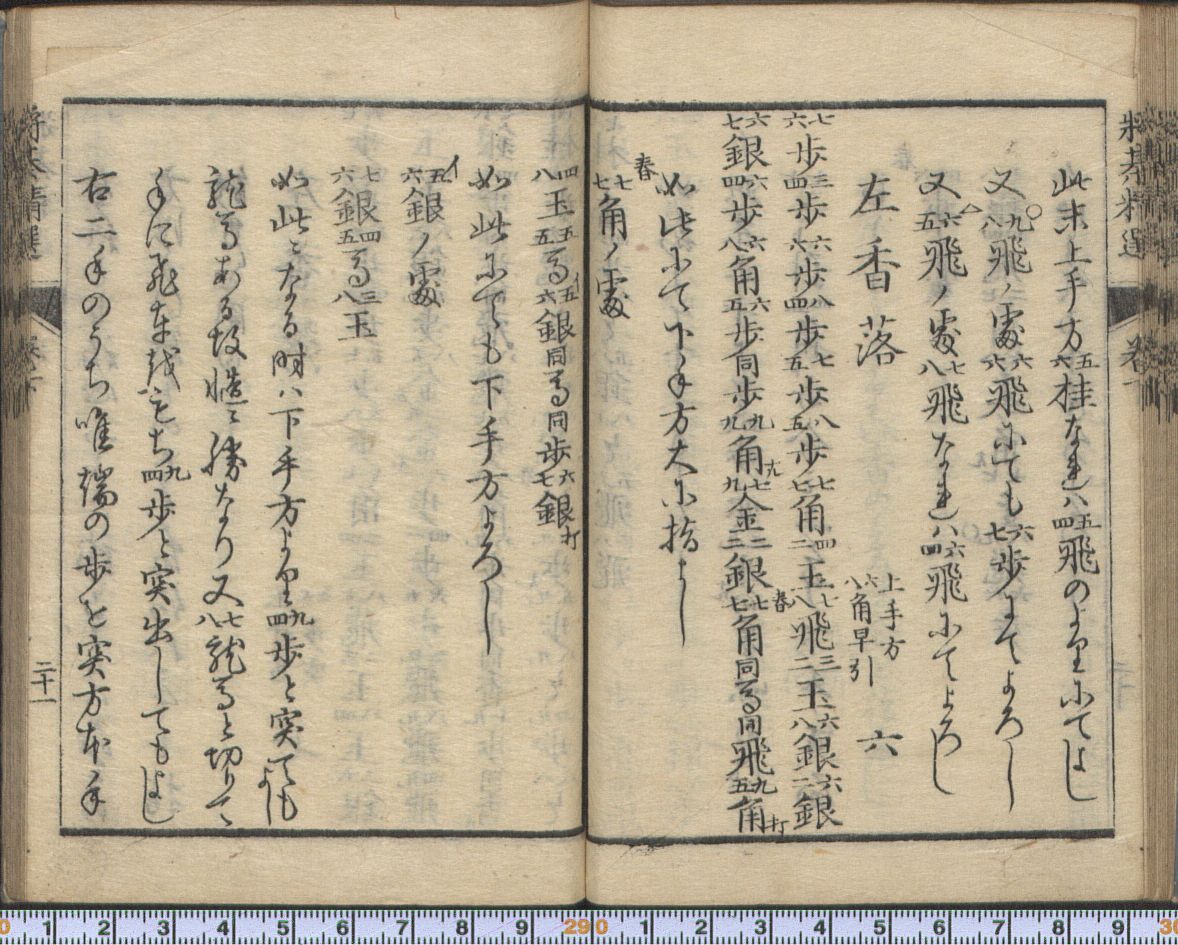 此末上手方六五桂なれハ四五飛のよりにてよし
又八九飛ノ處六六飛にても七六歩にてよろし
又五六飛ノ處八七飛なれハ四六飛にてよろし
左香落 上手方八六角早引 六
六七歩四三歩六六歩四八歩五七歩五八歩七七角二四玉八七飛二三玉八六銀二六銀
七六銀四六歩八六角五六歩同歩九九角九七金二二銀七七角同馬同飛五九角打
如此にて下手方大に指よし
春
七七角ノ處
八四玉五五馬六五銀同馬同歩七六銀打
如此にても下手方よろし
イ
六五銀ノ處
六七銀五四馬八三玉
如此になる時ハ下手方より四九歩と突てもよし
龍馬ある故慥に勝なり又八七龍馬と切りて
手に飛車をもち四九歩と突出してもよし
右二手のうち唯端の歩を突方本手
将棊精選 巻下
二十一